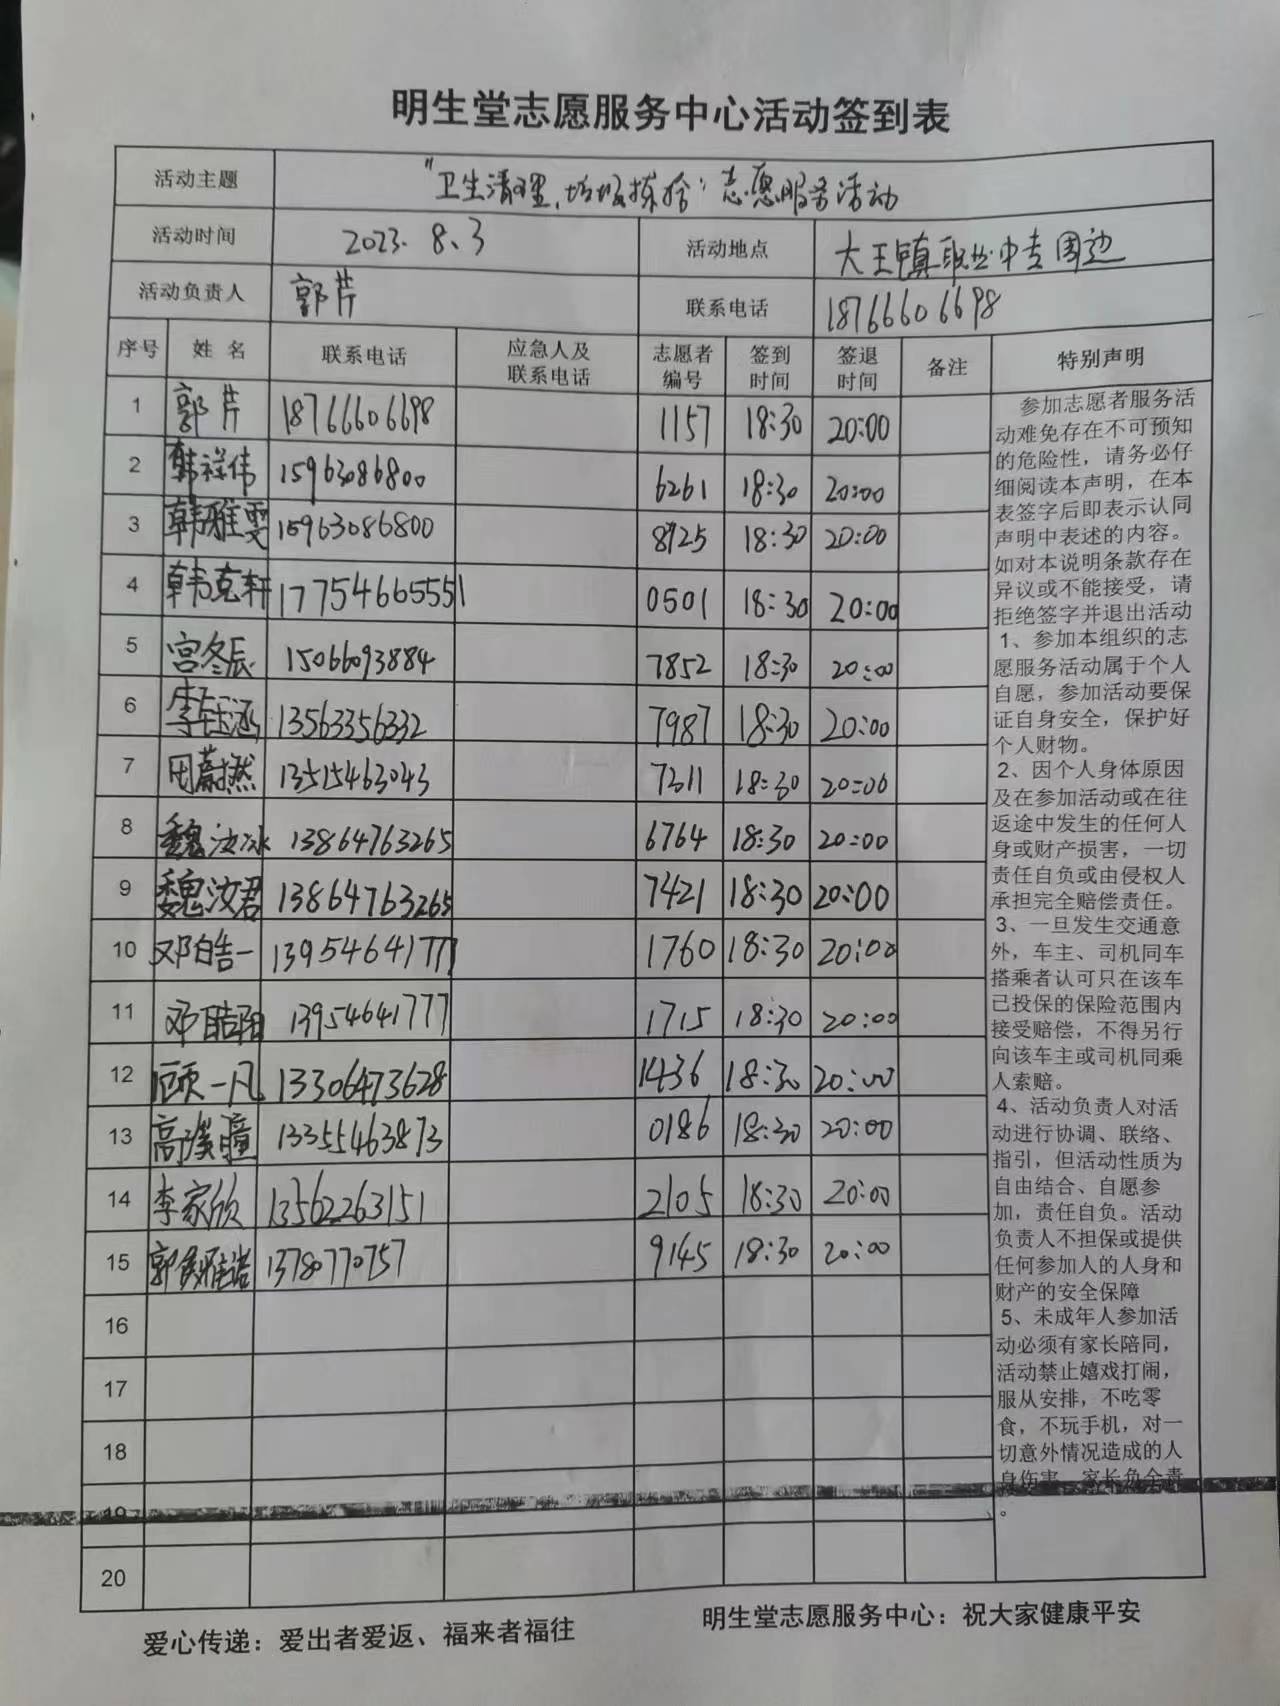 明生堂志愿服务中心活动签到表
活动主题 "卫生清理,垃圾拣拾"志愿服务活动
活动时间 2023.8.3 活动地点 大王镇职业中专周边
活动负责人 郭芹 联系电话 18766606698
序号 姓名 联系电话 应急人及联系电话 志愿者编号 签到时间 签退时间 备注 特别声明
1 郭芹 18766606698 1157 18:30 20:00
2 韩祥伟 15963086800 6261 18:30 20:00
3 韩雅雯 15963086800 8925 18:30 20:00
4 韩克轩 17754665551 0501 18:30 20:00
5 宫冬辰 15066093884 7852 18:30 20:00
6 李钰涵 13563356332 7987 18:30 20:00
7 田蔚然 13515463043 7311 18:30 20:00
8 魏汝冰 13864763265 6764 18:30 20:00
9 魏汝君 13864763265 7421 18:30 20:00
10 邓皓一 13954641777 1760 18:30 20:00
11 邓皓阳 13954641777 1715 18:30 20:00
12 顾一凡 13306473628 1436 18:30 20:00
13 高 瞳 13355463873 0186 18:30 20:00
14 李家欣 13562263151 2105 18:30 20:00
15 郭 雅诺 13780770757 9145 18:30 20:00
16
17
18
19
20
参加志愿者服务活
动难免存在不可预知
的危险性,请务必仔
细阅读本声明,在本
表签字后即表示认同
声明中表述的内容。
如对本说明条款存在
异议或不能接受,请
拒绝签字并退出活动
1、参加本组织的志
愿服务活动属于个人
自愿,参加活动要保
证自身安全,保护好
个人财物。
2、因个人身体原因
及在参加活动或在往
返途中发生的任何人
身或财产损害,一切
责任自负或由侵权人
承担完全赔偿责任。
3、一旦发生交通意
外,车主、司机同车
搭乘者认可只在该车
已投保的保险范围内
接受赔偿,不得另行
向该车主或司机同乘
人索赔。
4、活动负责人对活
动进行协调、联络、
指引,但活动性质为
自由结合、自愿参
加,责任自负。活动
负责人不担保或提供
任何参加人的人身和
财产的安全保障
5、未成年人参加活
动必须有家长陪同,
活动禁止嬉戏打闹,
服从安排,不吃零
食,不玩手机,对一
切意外情况造成的人
身伤害,家长负全责
。
爱心传递:爱出者爱返、福来者福往
明生堂志愿服务中心:祝大家健康平安